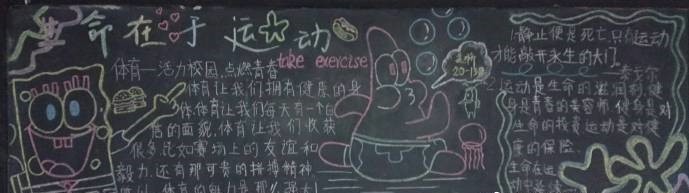 生命在于运动
take exercise
体育—活力校园,点燃青春
体育让我们拥有健康的身
体,体育让我们每天有一个
活的面貌,体育让我们收获
很多,比如赛场上的友谊和
毅力,还有那可贵的拼搏精神
体育的魅力是那么强大
20-13
1.静止便是死亡,只有运动
才能敲开永生的大门
泰戈尔
2.运动是生命的 健
身是青春的美容师,健身是对
生命的投资,运动是对健
康的保险.
生命在运
动中